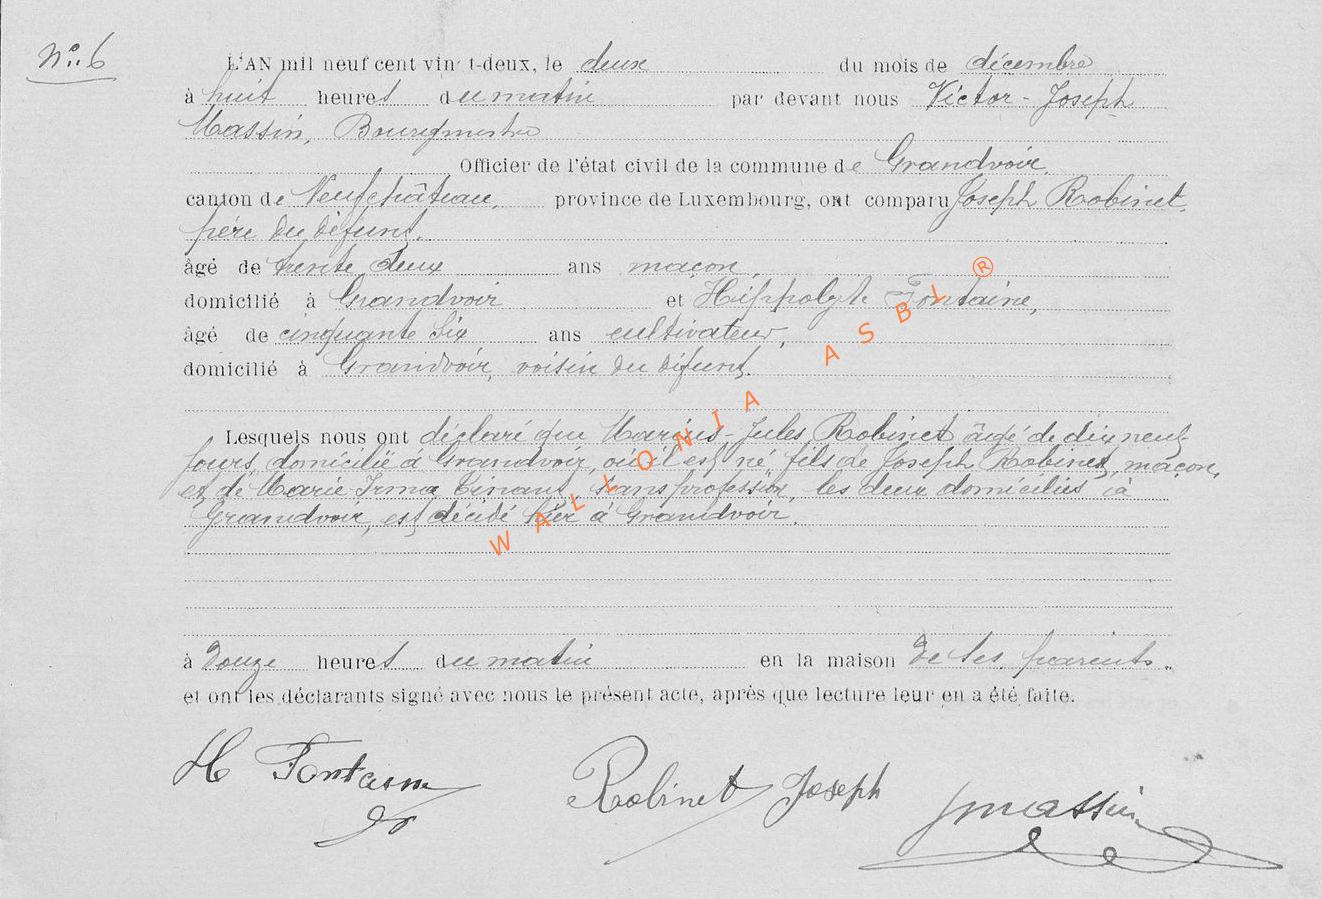 N° 6
L'AN mil neuf cent vingt-deux, le deux du mois de décembre
à huit heures du matin par devant nous Victor-Joseph
Massin, Bourgmestre
Officier de l'état civil de la commune de Grandvoir,
canton de Neufchâteau, province de Luxembourg, ont comparu Joseph Robinet,
père du défunt,
âgé de trente deux ans maçon,
domicilié à Grandvoir et Hippolyte Fontaine,
âgé de cinquante six ans cultivateur,
domicilié à Grandvoir, voisin du défunt.
Lesquels nous ont déclaré que Marius-Jules Robinet âgé de dix neuf
jours, domicilié à Grandvoir, où il est né, fils de Joseph Robinet, maçon,
et de Marie Irma sans profession, les deux domiciliés à
Grandvoir, est décédé hier à Grandvoir.
à douze heures du matin en la maison de ses parents.
et ont les déclarants signé avec nous le présent acte, après que lecture leur en a été faite.
H Fontaine
Robinet Joseph
Jmassin
WALLONIA ASBL ®